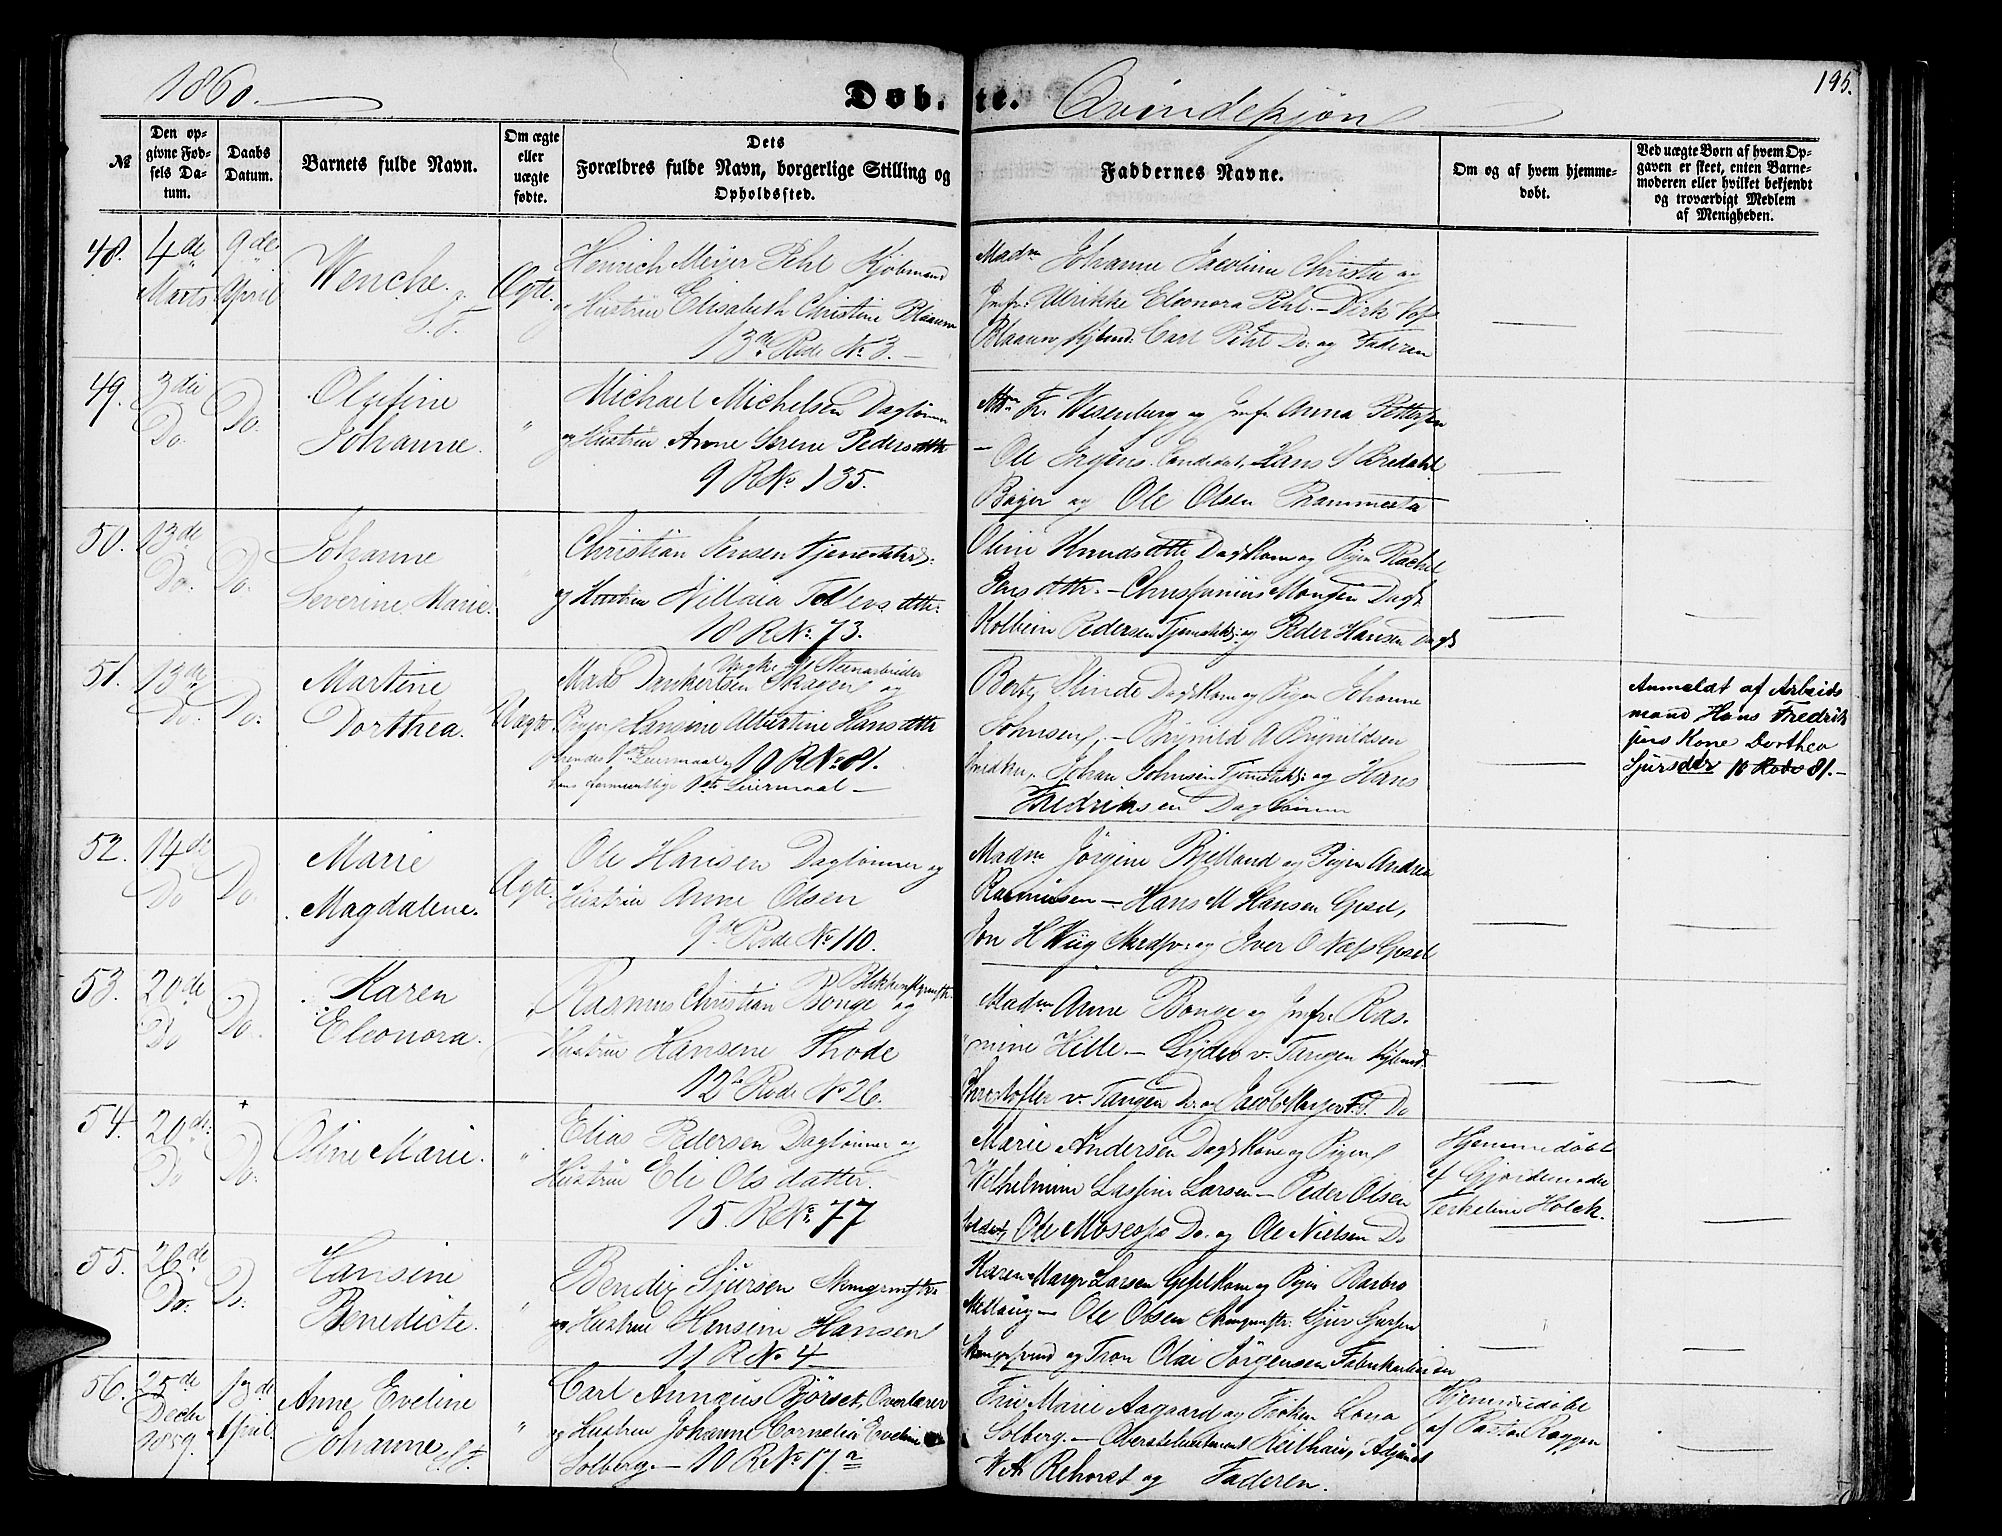 1860.
Døbte. Qvindekjøn
195.
№
Den opgivne Fødsels Datum.
Daabs Datum.
Barnets fulde Navn.
Om ægte eller uægte fødte.
Dets Forældres fulde Navn, borgerlige Stilling og Opholdssted.
Faddernes Navne.
Om og af hvem hjemmedøbt.
Ved uægte Børn af hvem Opgaven er skeet, enten Barnemoderen eller hvilket bekjendt og troværdigt Medlem af Menigheden.
48. 4de Marts 9de April Wenche. Ægte.
Henrich Meyer Pihl Kjøbmand
og Hustru Elisabeth Christine Blaauw
13de Rode No 3.
Madm Johanne Jacobine Christie og
Jmfr. Ulrikke Eleonora Pihl. - Dirk
Blaauw, Kjbmd. Carl Pihl Do. og Faderen
49. 3die Do. Do. Olufine Johanne. "
Michael Michelsen Daglønner
og Hustru Anne Serene Pedersdttr
9 R No 135.
Fr. Wesenberg og Jmfr Anna Pettersen
- Ole Irgens Candidat, Hans S Bredahl
Bager og Ole Olsen
50. 13de Do. Do. Johanne Severine Marie. "
Christian Jensen
og Hustru Tollevsdttr.
18 R No. 73.
Oline Knudsdttr Dagskone og Pigen Rachel
Jensdttr. - Monsen Dagk
Kolbein Pedersen og Peder Hansen
51. 13de Do. Do. Martine Dorthea. Uægte.
Ungke og Steenarbeider
Mads Dankertsen Skagen og
Pigen Hansine Albertine Hansdttr
hendes 1ste Leiermaal, 19 R No 81.
hans formentlige 1ste Leiermaal -
Pigen Johanne
Johnsen, - Brynild A Brynildsen
Snedker, Johan Johnsen og Hans
Fredriksen Daglønner
Anmeldt af Arbeids
mand Hans Fredrik
sens Kone Dorthea
Sjursdtr Rode 81. -
52. 14de Do Do. Marie Magdalene. Ægte.
Ole Hansen Dagløner og
Hustru Anne Olsen
9de Rode No 110.
Madm Jørgine Bjelland og Pigen Andrea
Rasmussen - Hans M Hansen Gesel,
Jon H Wiig og Iver O Næss Gesel
53. 20de Do Do. Karen Eleonora. "
Rasmus Christian Bonge og
Hustru Hansene Thode
12te Rode No 26.
Madm Anne Bonge og Jmfr. Ras.
mine Hille. - Lyder v. Tangen Kjbmd.
Christoffer v. Tangen Do. og Jacob Do
54. 20de Do Do. Oline Marie. "
Elias Pedersen Dagløner og
Hustru Eli Olsdatter.
15. R No. 77
Marie Andersen Dagskone og Pigen
Wilhelmine Larsen - Peder Olsen
Soldat, Ole Do. og Ole Nielsen Do
Hjemmedøbt
af Gjordemoder
Terkeline Holck.
55. 26de Do. Do. Hansine Benedicte. "
Bendix Sjursen
og Hustru Hansine Hansen
11 R No 4
Karen Larsen Geselkone og Pigen Barbro
Mellaug - Ole Olsen Sjur Sjursen
og Tron Olai Jørgensen Fabrikarbeider
56. 25de Decbr 1859. 1ste April. Anne Eveline Johanne. "
Carl Annæus Bjørset, Overlærer
og Hustru Johanne Cornelia Eveline
Solberg. - 10 R No 17 a
Fru Marie Aagaard og Frøken Lona
Solberg. - Oberstlieutenant Keilhau, Adjunct
W A Rehorst og Faderen.
Hjemmedøbt
af Pastor Roggen